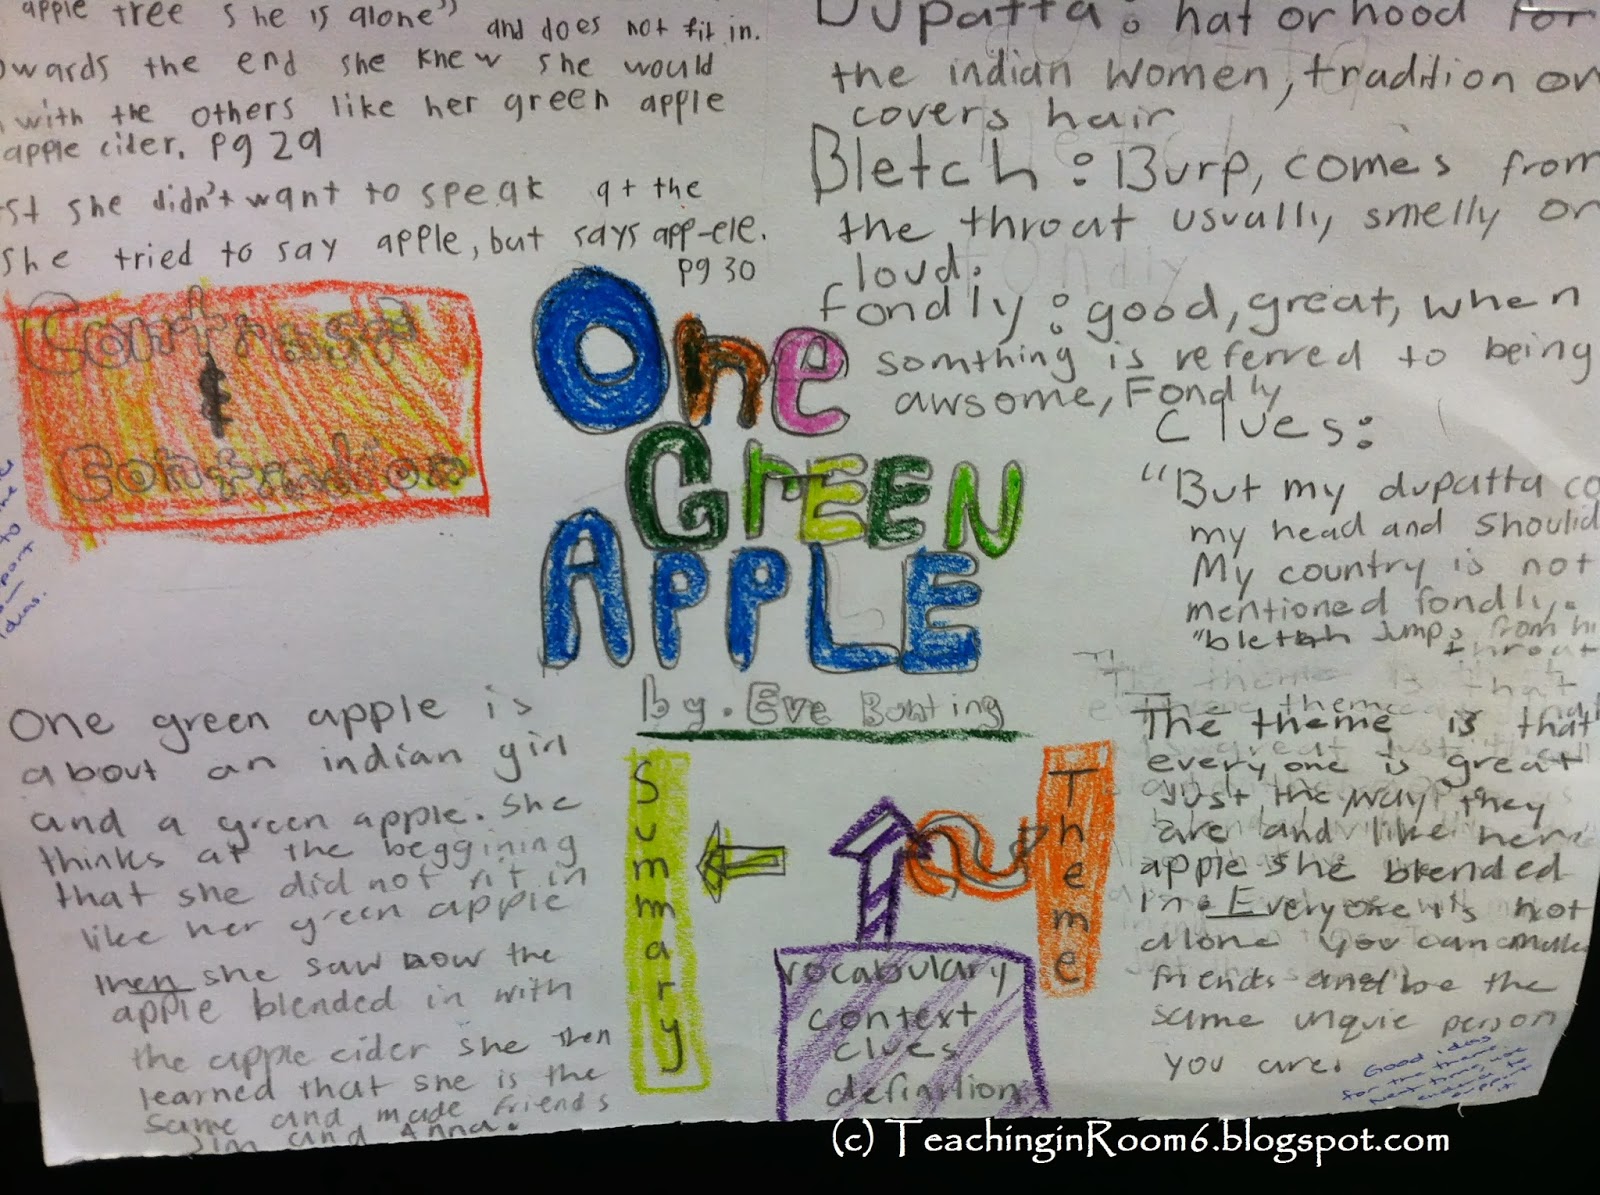 apple tree she is alone" and does not fit in.
owards the end she knew she would
with the others like her green apple
apple cider. Pg 29
st she didn't want to speak at the
she tried to say apple, but says app-ele.
Pg 30
Dupatta: hat or hood for
the indian women, tradition or
covers hair
Bletch: Burp, comes from
the throat usually smelly or
loud.
fondly: good, great, when
somthing is referred to being
awsome, Fondly
Clues:
"But my dupatta co
my head and Should
My country is not
mentioned fondly.
"bletch Jumps from hi
throat
Contrast
&
Contradion
to
Ideas.
One
GrEEN
APPLE
by. Eve Bonting
One green apple is
about an indian girl
and a green apple. She
thinks at the beggining
that she did not fit in
like her green apple
then she saw how the
apple blended in with
the apple cider she then
learned that she is the
same and made friends
Jim and Anna.
Summary
Theme
vocabulary
context
clues
definition
The theme is that
everyone is great
Just the way they
are and like her
apple she blended
in. Everyone is not
alone you can make
friends and be the
same unquie person
you are.
Good ideas
for the theme.
Next time, use
evidence to
support
(c) TeachinginRoom6.blogspot.com